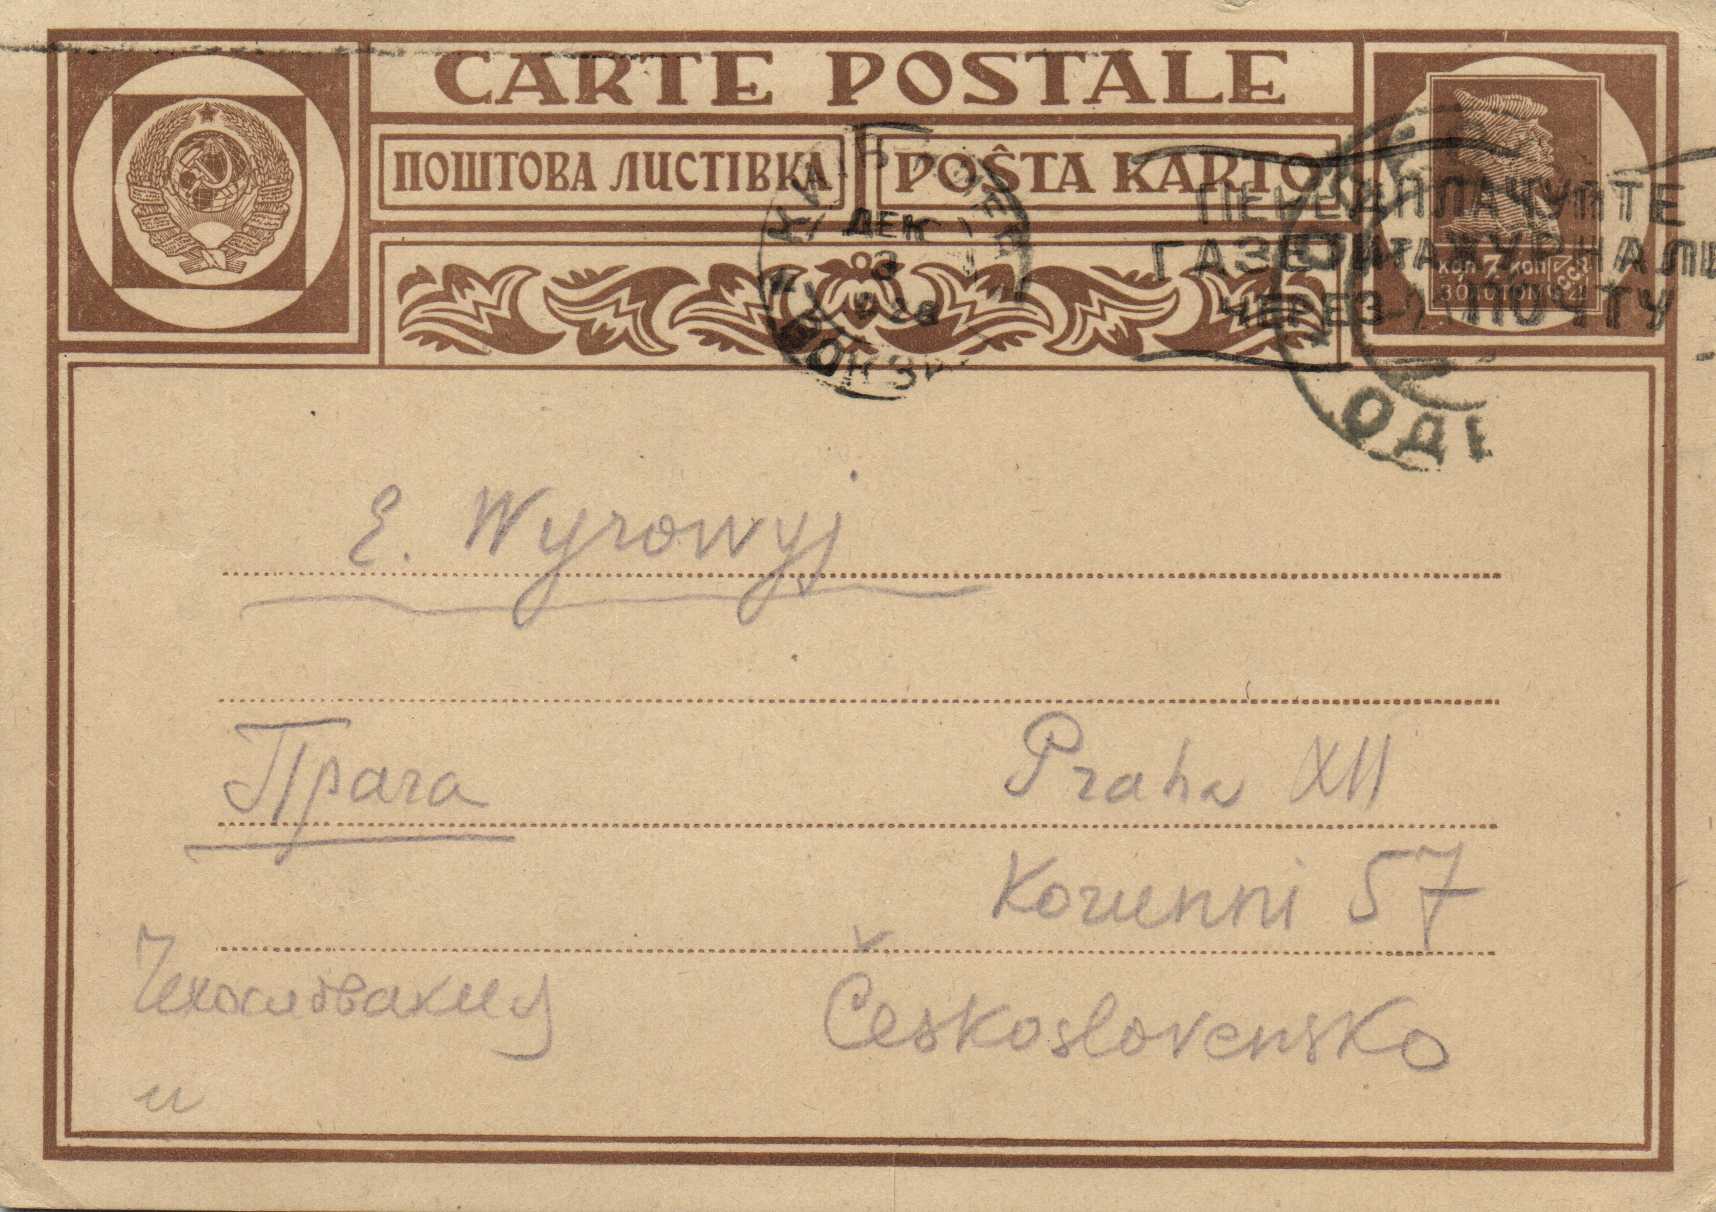 CARTE POSTALE
ПОШТОВА ЛИСТІВКА
POŜTA KARTO
ДЕК
ПЕРЕДПЛАЧУЙТЕ
ГАЗЕТИ ТА ЖУРНАЛИ
ЧЕРЕЗ ПОЧТУ
7 КОП
ЗОЛОТОМ
ОДЕ
E. Wyrowyj
Прага
Praha XII
Korunni 57
Чехословакия
Československo